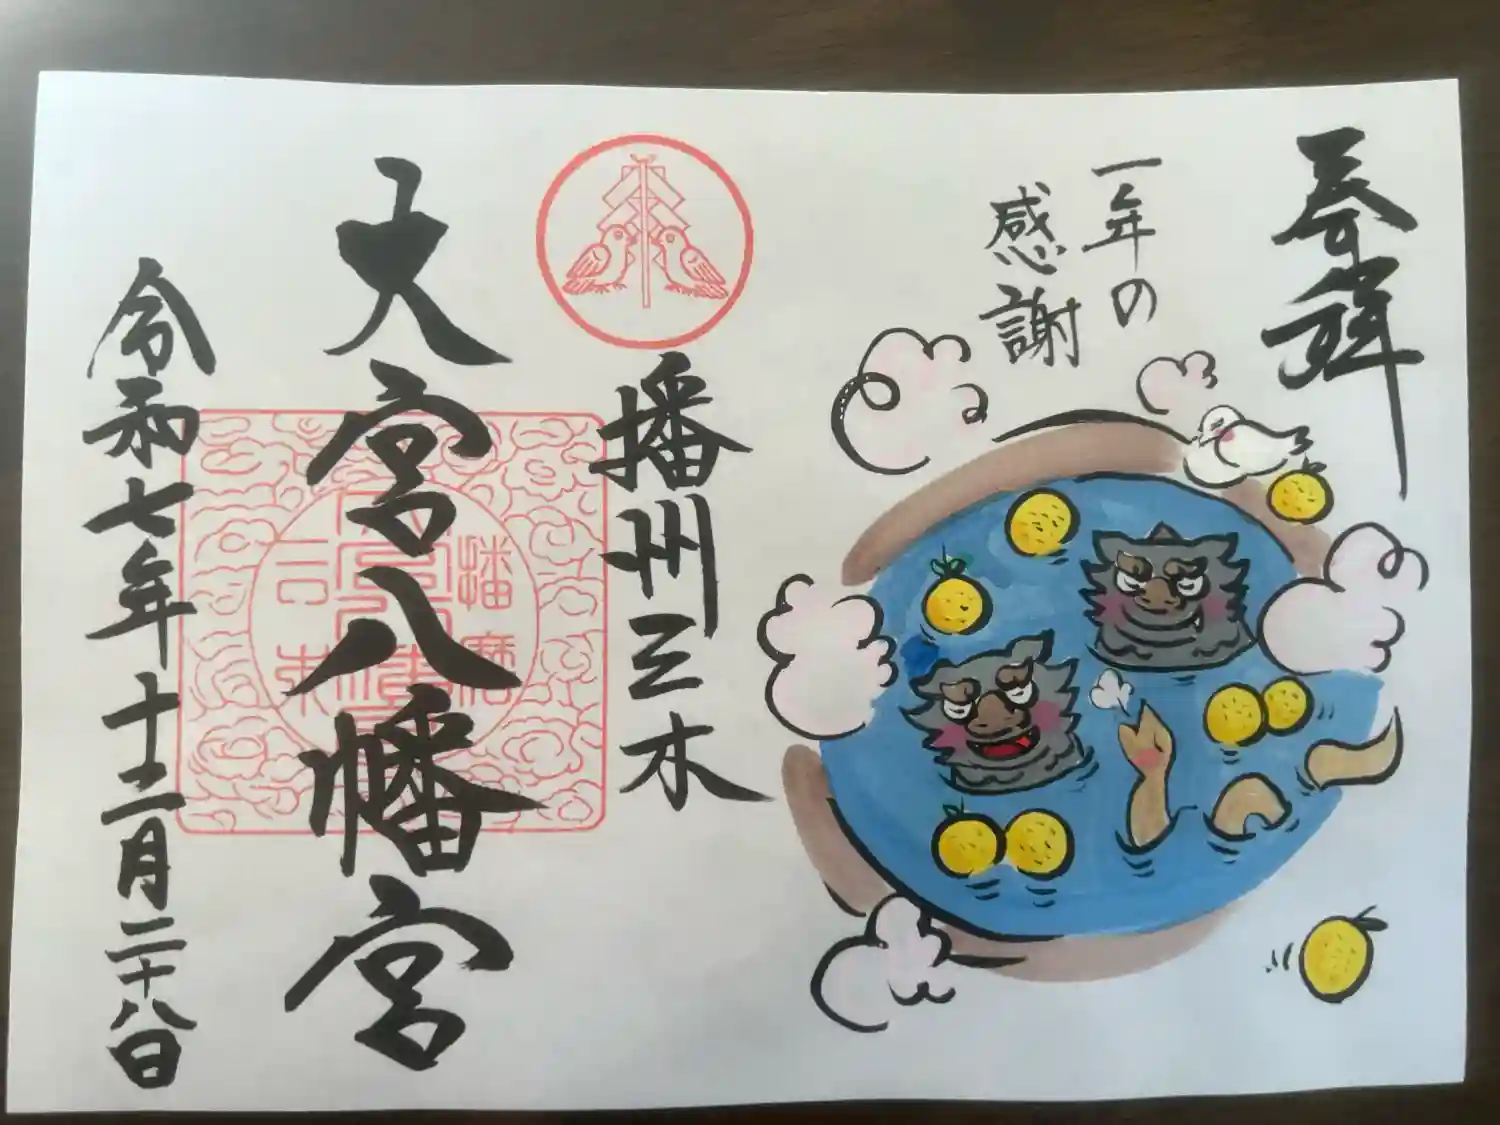 奉拝
一年の
感謝
播州三木
大宮八幡宮
播磨
令和七年十二月二十八日